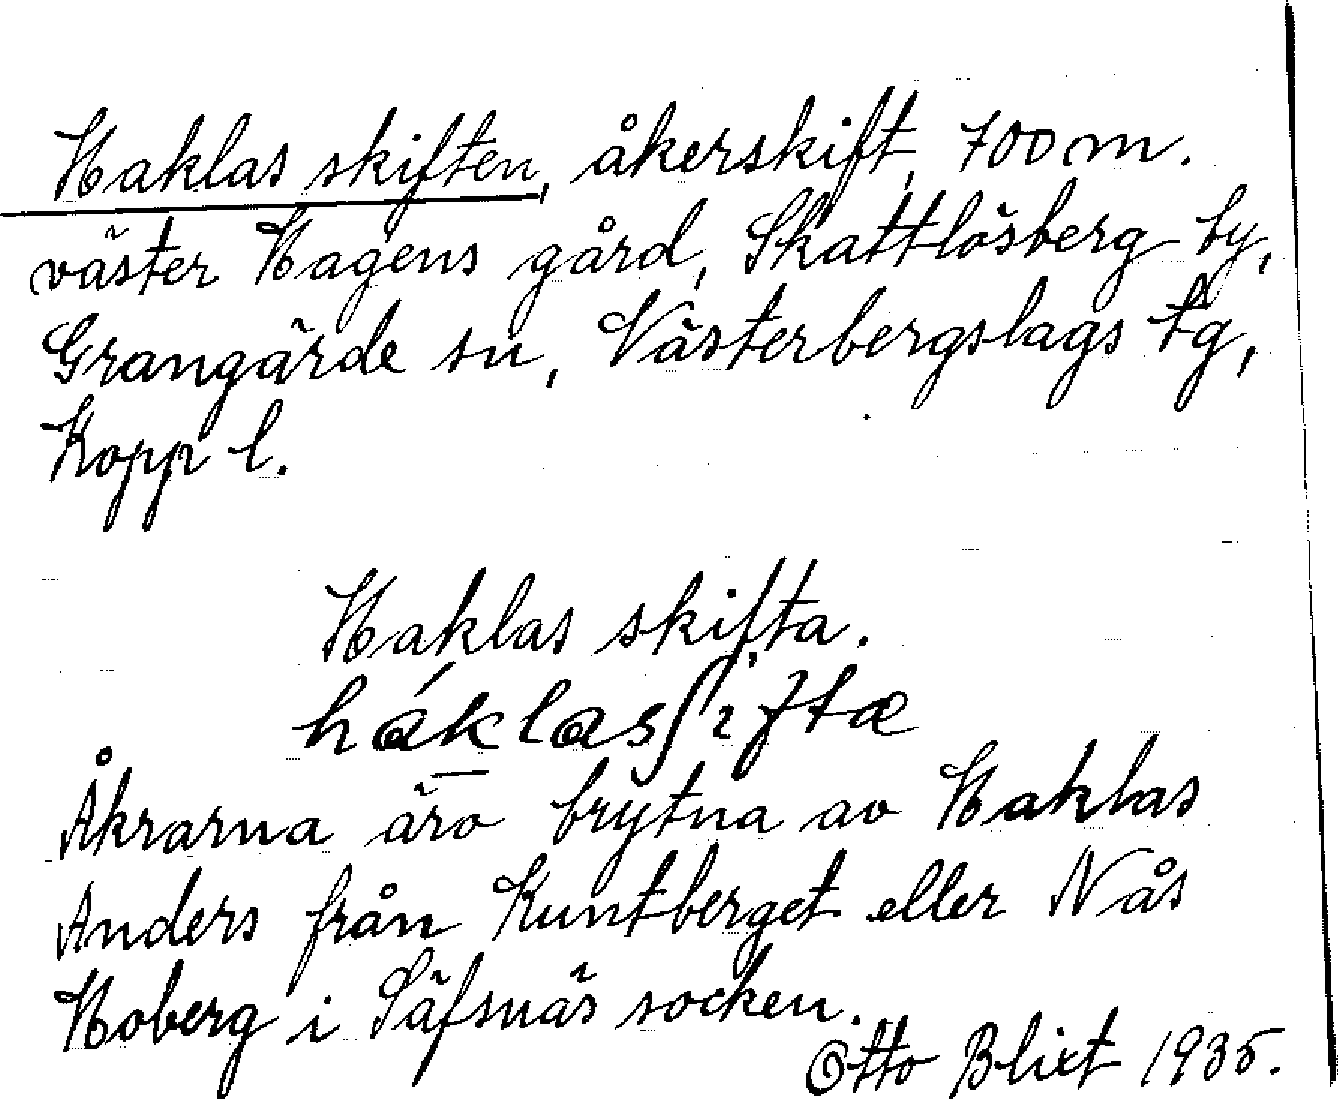 Haklas skiften, åkerskift, 700 m.
väster Hagens gård, Skattlösberg by,
Grangärde sn, Västerbergslags tg,
Kopp l.
Haklas skifta.
háklasʃiftæ
Åkrarna äro brytna av Haklas
Anders från Kuntberget eller Nås
Hoberg i Säfsnäs socken.
Otto Blixt 1935.